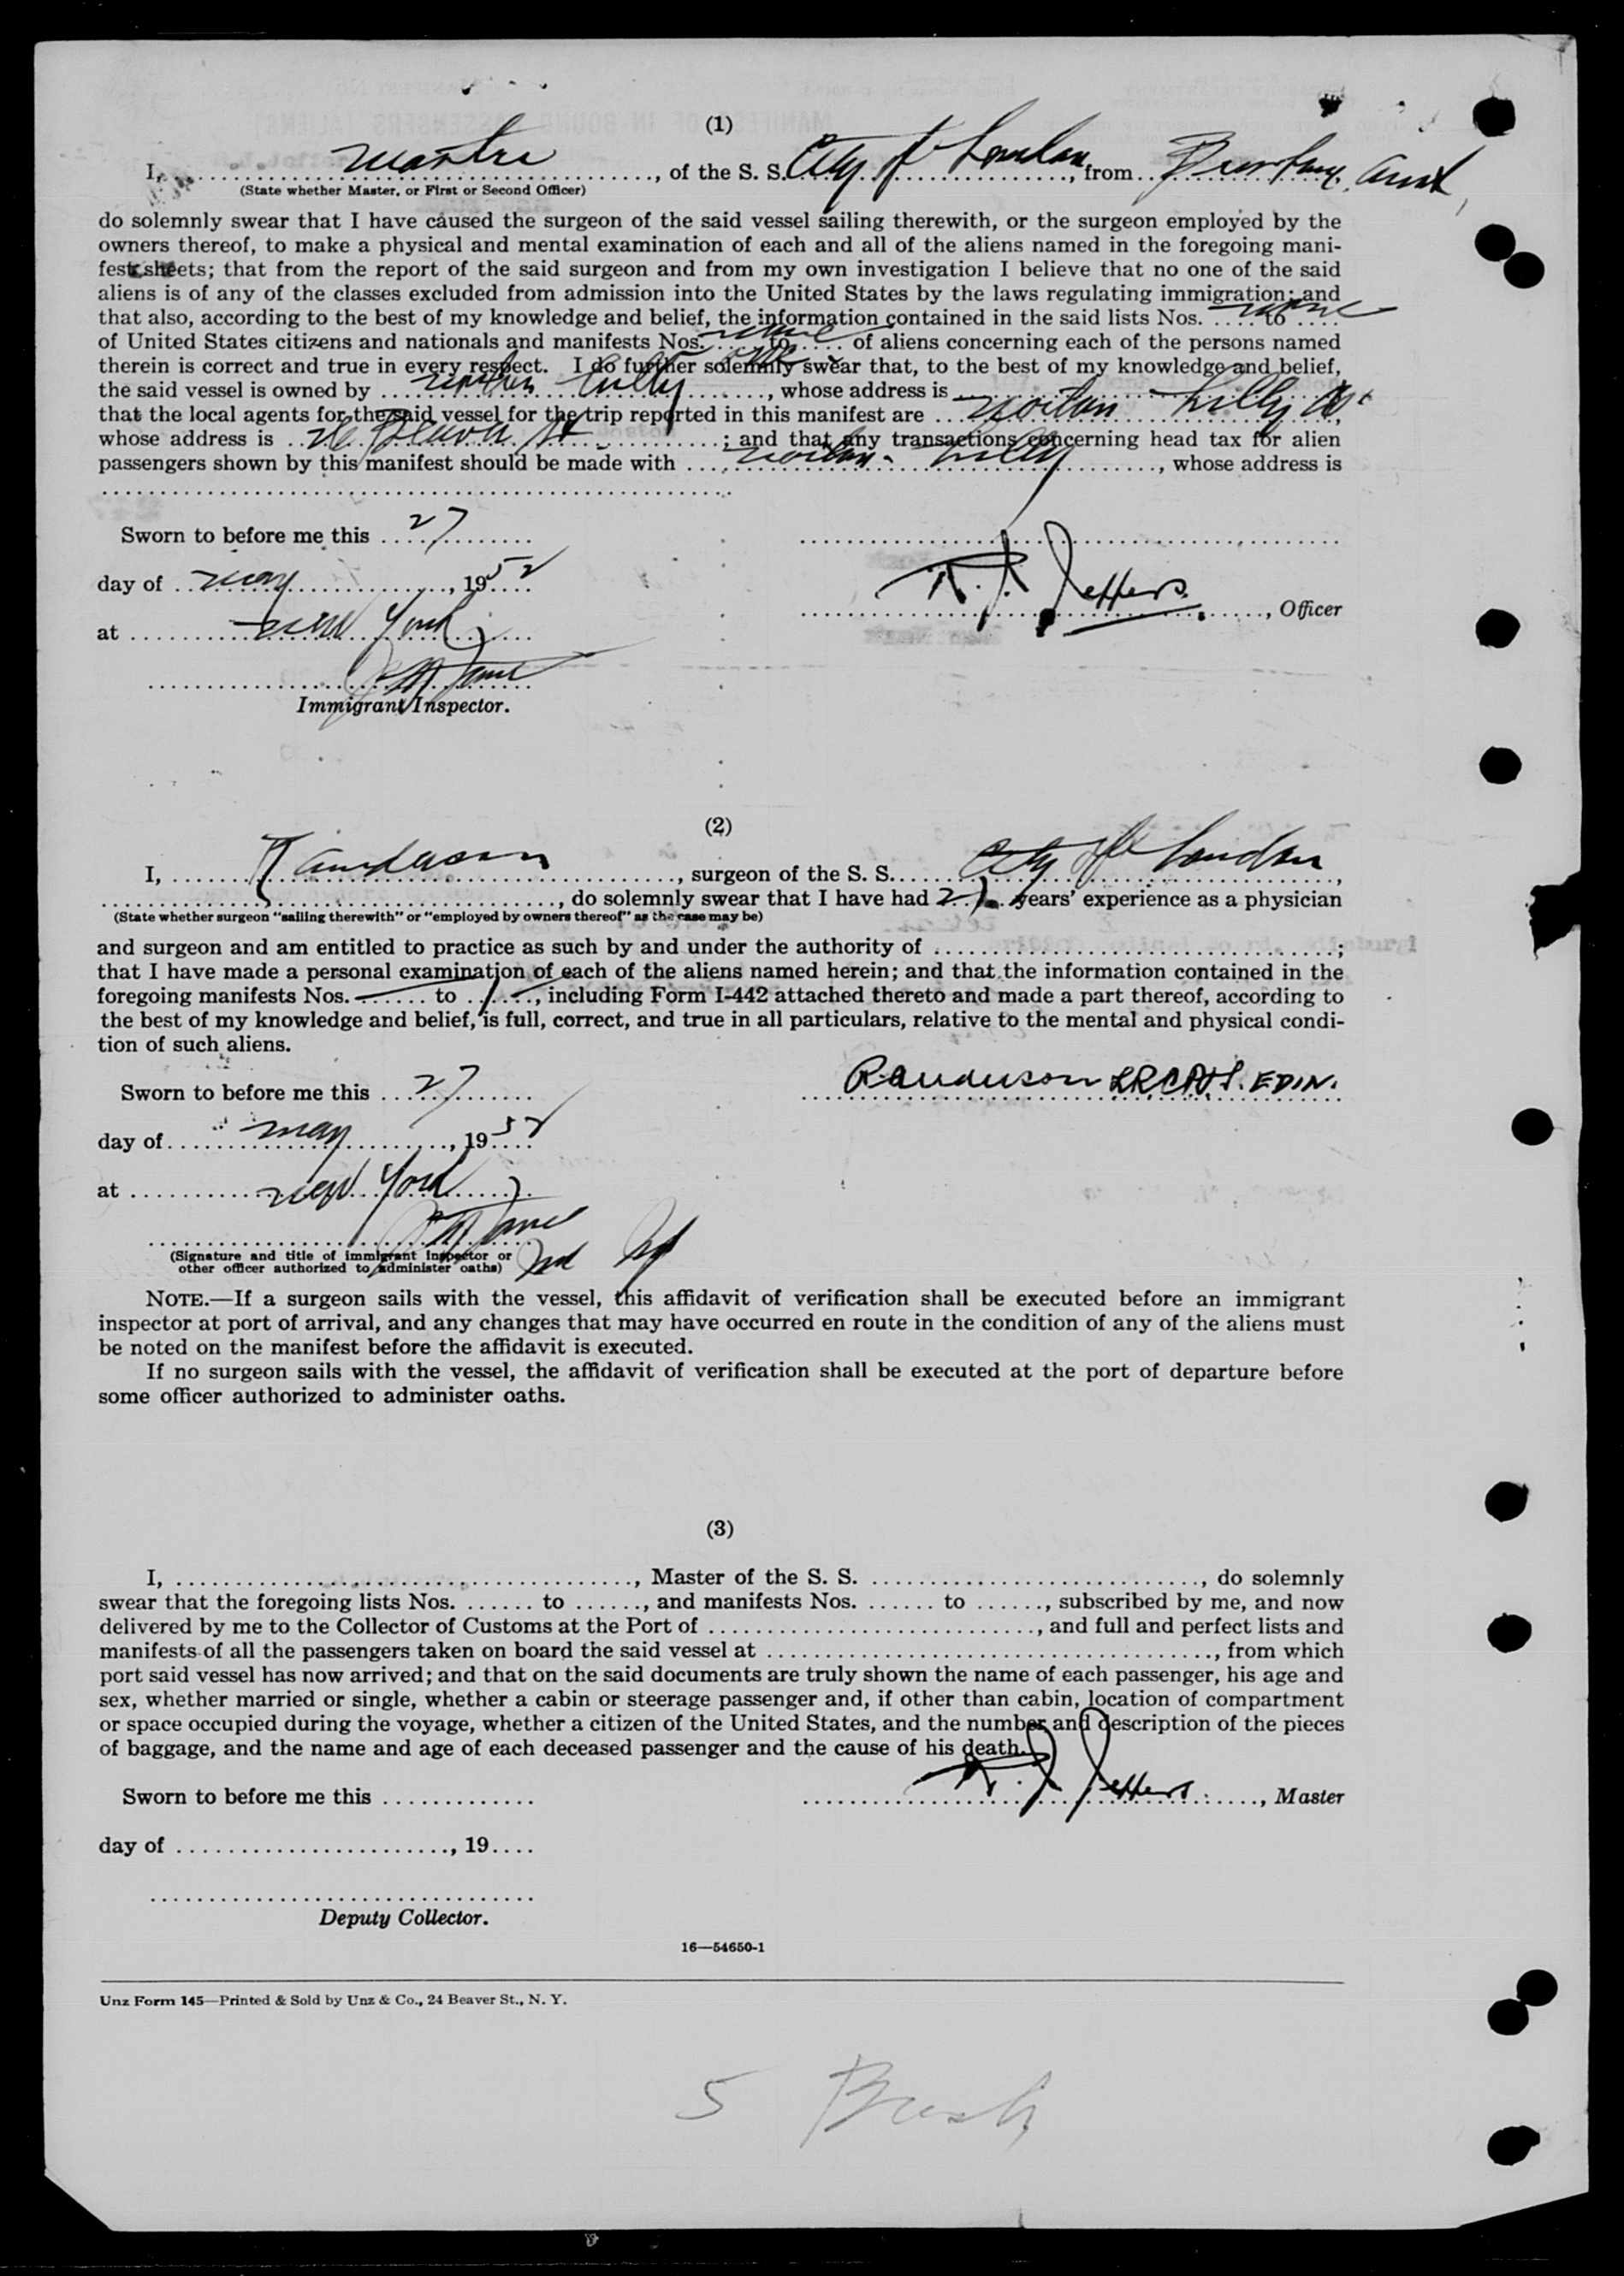 (1)
I, Master, of the S. S. City of London, from
(State whether Master, or First or Second Officer)
do solemnly swear that I have caused the surgeon of the said vessel sailing therewith, or the surgeon employed by the
owners thereof, to make a physical and mental examination of each and all of the aliens named in the foregoing mani-
fest sheets; that from the report of the said surgeon and from my own investigation I believe that no one of the said
aliens is of any of the classes excluded from admission into the United States by the laws regulating immigration; and
that also, according to the best of my knowledge and belief, the information contained in the said lists Nos. none to
of United States citizens and nationals and manifests Nos. to of aliens concerning each of the persons named
therein is correct and true in every respect. I do further solemnly swear that, to the best of my knowledge and belief,
the said vessel is owned by Lilly, whose address is
that the local agents for the said vessel for the trip reported in this manifest are Norton Lilly
whose address is 26 Beaver St; and that any transactions concerning head tax for alien
passengers shown by this manifest should be made with Norton - Lilly, whose address is
Sworn to before me this 27
day of May, 1952
R. J. Jeffers, Officer
at New York
Immigrant Inspector.
(2)
I, R Anderson, surgeon of the S. S. City of London,
, do solemnly swear that I have had years' experience as a physician
(State whether surgeon "sailing therewith" or "employed by owners thereof" as the case may be)
and surgeon and am entitled to practice as such by and under the authority of ;
that I have made a personal examination of each of the aliens named herein; and that the information contained in the
foregoing manifests Nos. to 1, including Form I-442 attached thereto and made a part thereof, according to
the best of my knowledge and belief, is full, correct, and true in all particulars, relative to the mental and physical condi-
tion of such aliens.
Sworn to before me this 27
R Anderson LRCP&S. EDIN.
day of May, 1952
at New York
(Signature and title of immigrant inspector or
other officer authorized to administer oaths)
NOTE.—If a surgeon sails with the vessel, this affidavit of verification shall be executed before an immigrant
inspector at port of arrival, and any changes that may have occurred en route in the condition of any of the aliens must
be noted on the manifest before the affidavit is executed.
If no surgeon sails with the vessel, the affidavit of verification shall be executed at the port of departure before
some officer authorized to administer oaths.
(3)
I, , Master of the S. S. , do solemnly
swear that the foregoing lists Nos. to , and manifests Nos. to , subscribed by me, and now
delivered by me to the Collector of Customs at the Port of , and full and perfect lists and
manifests of all the passengers taken on board the said vessel at , from which
port said vessel has now arrived; and that on the said documents are truly shown the name of each passenger, his age and
sex, whether married or single, whether a cabin or steerage passenger and, if other than cabin, location of compartment
or space occupied during the voyage, whether a citizen of the United States, and the number and description of the pieces
of baggage, and the name and age of each deceased passenger and the cause of his death.
Sworn to before me this
R. J. Jeffers, Master
day of , 19
Deputy Collector.
16—54650-1
Unz Form 145—Printed & Sold by Unz & Co., 24 Beaver St., N. Y.
5 Bush